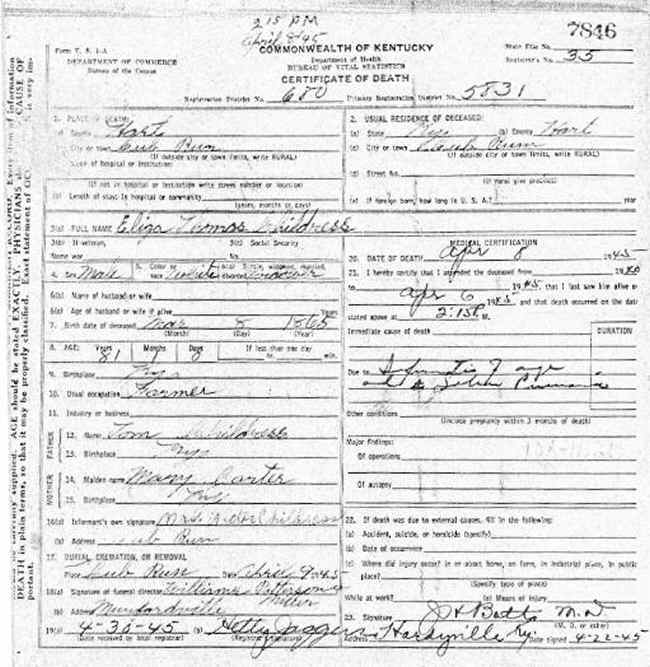 2 15 PM
April 8 45
7846
Form V. S. 1-A
DEPARTMENT OF COMMERCE
Bureau of the Census
COMMONWEALTH OF KENTUCKY
Department of Health
BUREAU OF VITAL STATISTICS
CERTIFICATE OF DEATH
State File No.
Registrar's No. 35
Registration District No. 680 Primary Registration District No. 5831
1. PLACE OF DEATH:
(a) County Hart
City or town Cub Run
(If outside city or town limits, write RURAL)
Name of hospital or institution:
(If not in hospital or institution write street number or location)
Length of stay in hospital or community
(years, months or days)
2. USUAL RESIDENCE OF DECEASED:
(a) State Ky (b) County Hart
(c) City or town Cub Run
(If outside city or town limits, write RURAL)
(d) Street No.
(If rural give precinct)
(e) If foreign born, how long in U. S. A.? year
3(a) FULL NAME Eliza Thomas Childress
3(b) If veteran,
Name war
3(c) Social Security
No.
4. Sex Male 5. Color or race White
6(b) Name of husband or wife
6(c) Age of husband or wife if alive Years
7. Birth date of deceased Mar 8 1865
(Month) (Day) (Year)
8. AGE: Years Months Days If less than one day
81 8 hr. min.
9. Birthplace Ky
10. Usual occupation Farmer
11. Industry or business
FATHER
12. Name Tom Childress
13. Birthplace Ky
MOTHER
14. Maiden name Mary Carter
15. Birthplace Ky
16(a) Informant's own signature Mrs. Childress
(b) Address Cub Run
17. BURIAL, CREMATION, OR REMOVAL
Place Cub Run Date April 9 1945
18(a) Signature of funeral director Williams
(b) Address Munfordville
19(a) 4-30-45 (b) Hetty Jaggers
(Date received by local registrar) (Registrar's signature)
MEDICAL CERTIFICATION
20. DATE OF DEATH Apr 8 1945
21. I hereby certify that I attended the deceased from 1940
to Apr 6 1945, that I last saw him alive on
1945 and that death occurred on the date
stated above at 2:15P M.
Immediate cause of death
DURATION
Due to
Other conditions
(Include pregnancy within 3 months of death)
Major findings:
Of operations
Of autopsy
22. If death was due to external causes, fill in the following:
(a) Accident, suicide, or homicide (specify)
(b) Date of occurrence
(c) Where did injury occur? in or about home, on farm, in industrial place, in public
place?
(Specify type of place)
While at work? (e) Means of injury
23. Signature J H Batts M.D.
(M. D. or other)
Address Hardyville Ky Date signed 4-22-45